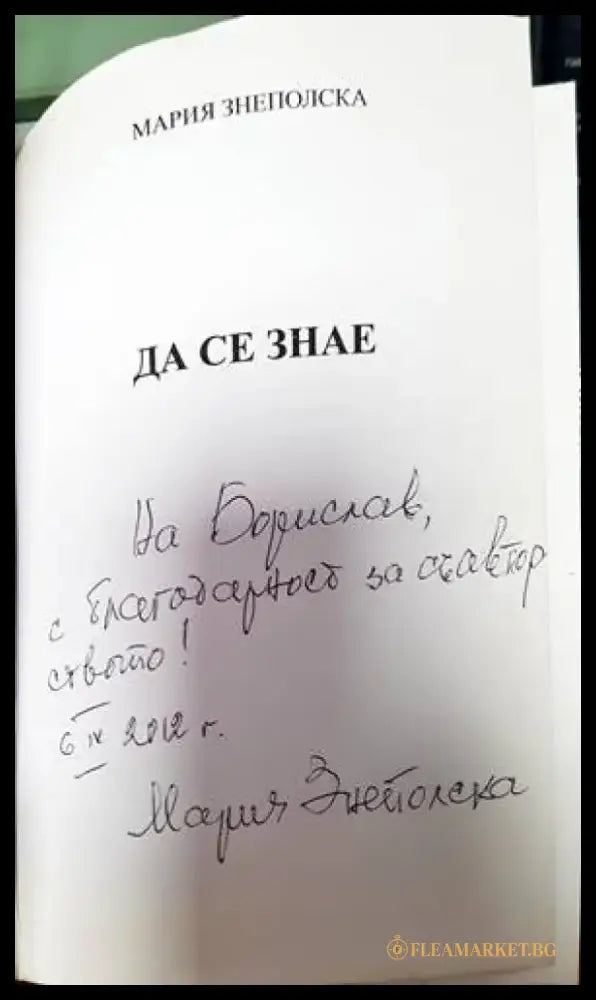 МАРИЯ ЗНЕПОЛСКА
ДА СЕ ЗНАЕ
На Борислав,
с благодарност за съавтор
ството!
6 IV 2012 г.
Мария Знеполска
FLEAMARKET.BG